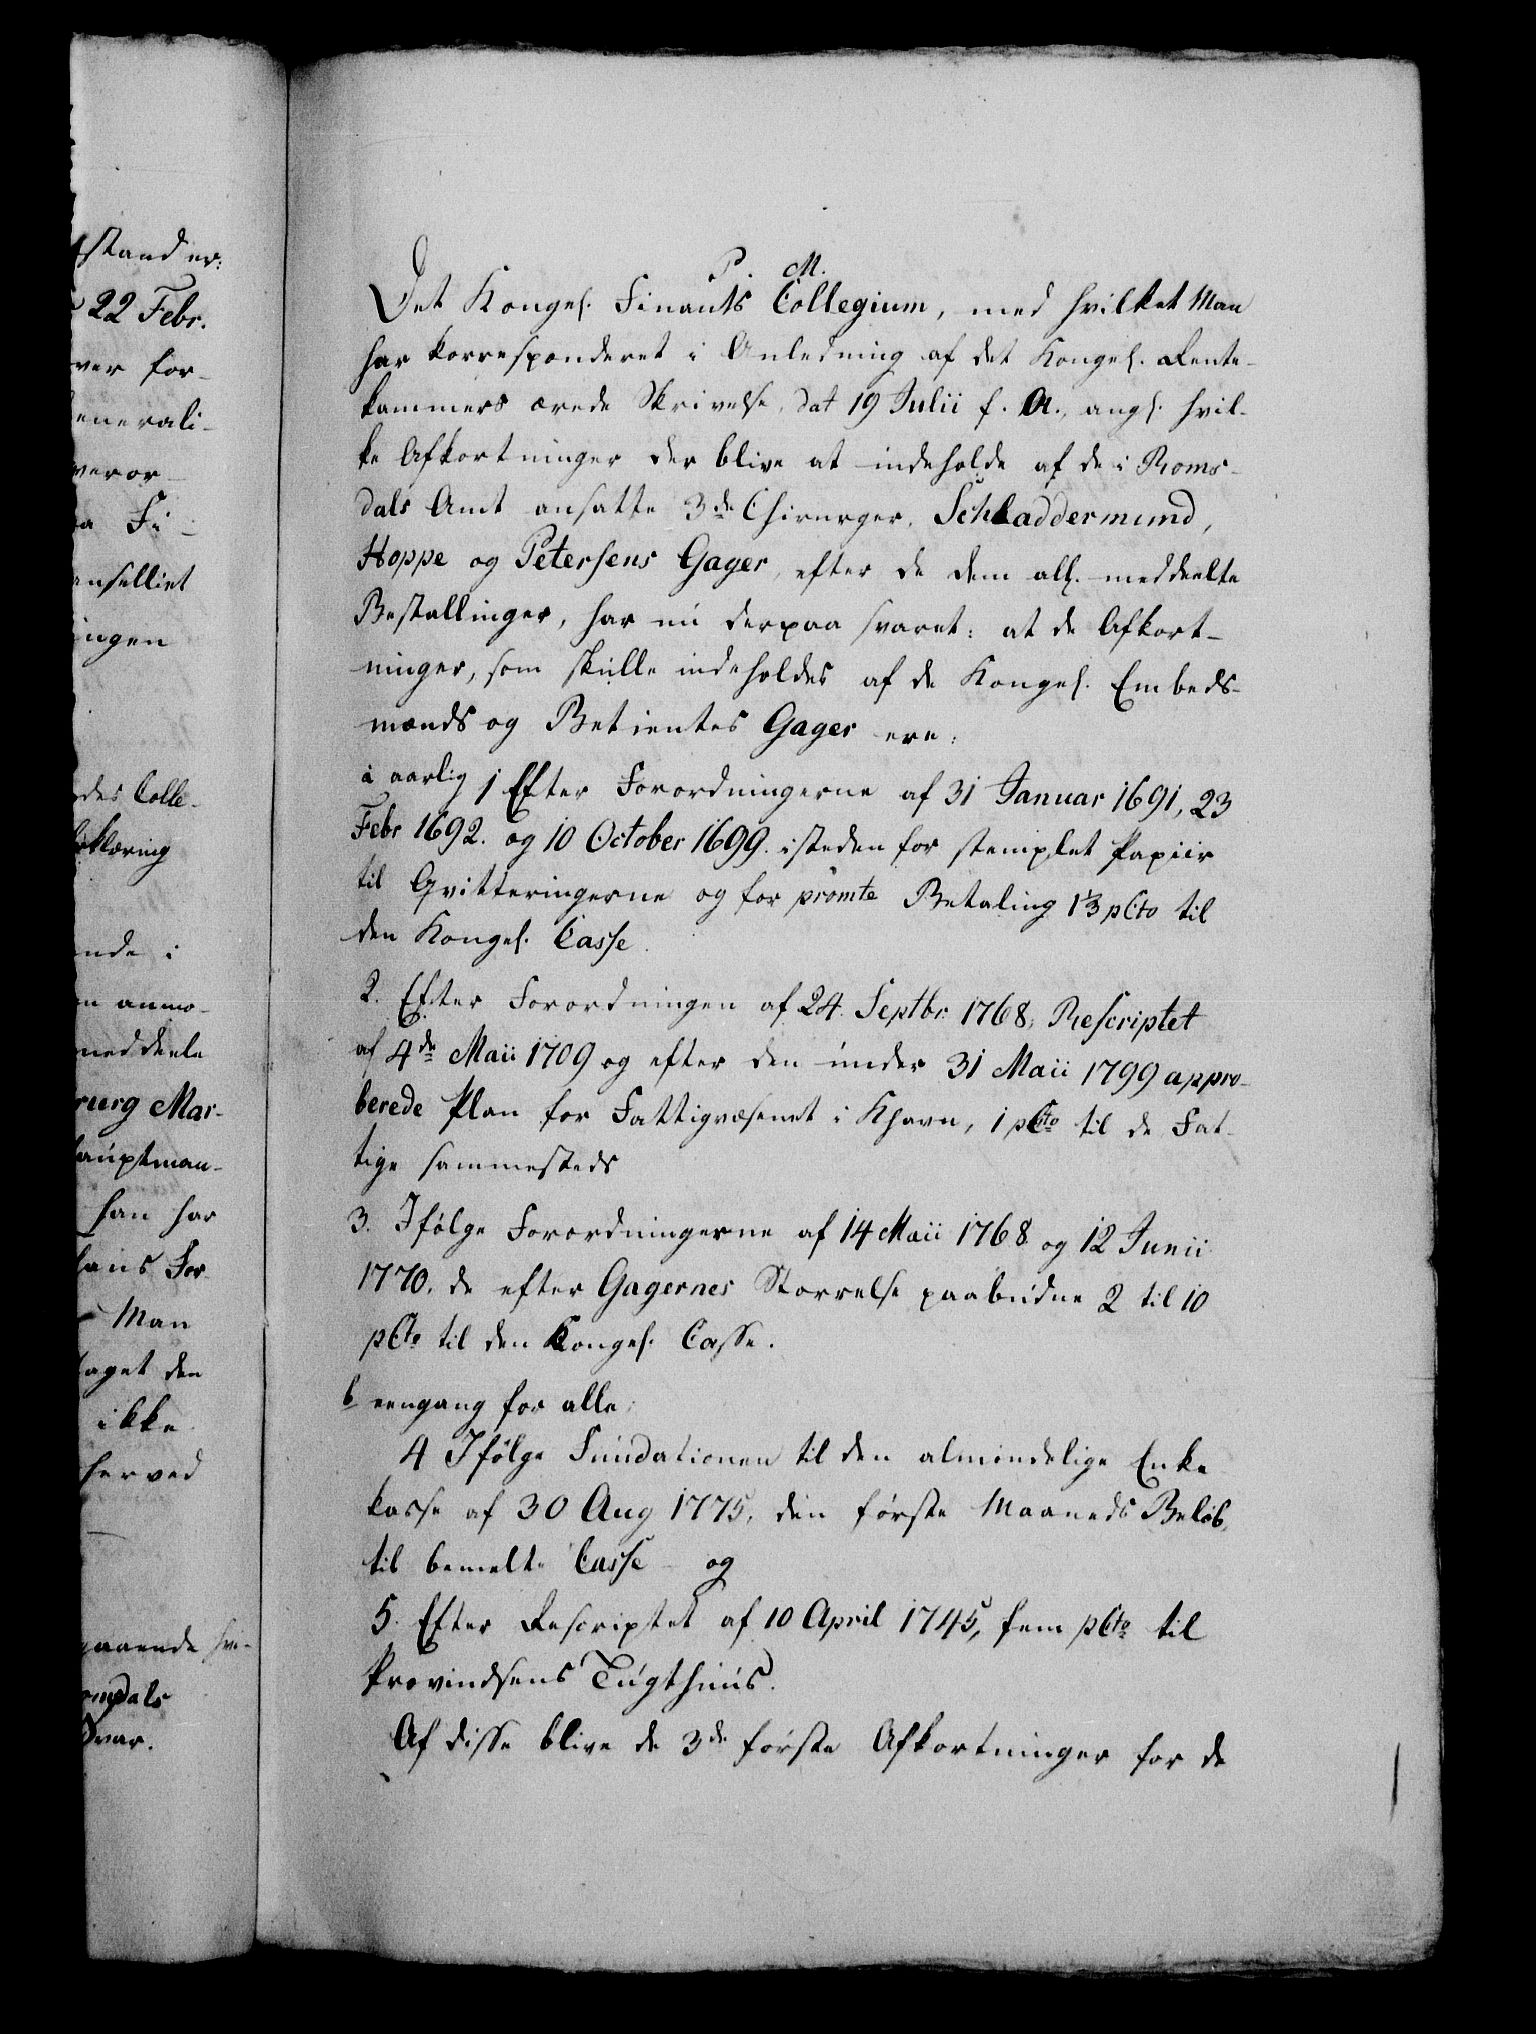 stander:
22 Febr.
ver for-
enerali-
veror-
a Fi-
ancelliet
ingen
des Colle-
rklæring
nde i
n anmo-
meddeele
rurg Mar-
hauptman-
han har
hans For
Man
taget den
ikke
herved
gaaende hvi-
omsdals
Svar.
P. M.
Det Kongel. Finants Collegium, med hvilket Man
har korresponderet i Anledning af det Kongel. Rente-
kammers ærede Skrivelse, dat 19 Julii f. A., angl. hvil-
ke Afkortninger der blive at indeholde af de i Roms-
dals Amt ansatte 3de Chirurger, Schladdermund,
Hoppe og Petersens Gager, efter de dem all. meddeelte
Bestallinger, har nu derpaa svaret: at de Afkort-
ninger, som skulle indeholdes af de Kongel. Embeds-
mænds og Betientes Gager ere:
a aarlig 1 Efter Forordningerne af 31 Januar 1691, 23
Febr 1692. og 10 October 1699. isteden for stemplet Papiir
til Qvitteringerne og for promte Betaling 1⅓ pCto til
den Kongel. Casse.
2. Efter Forordningen af 24. Septbr. 1768, Rescriptet
af 4de Maii 1709 og efter den under 31 Maii 1799 appro-
berede Plan for Fattigvæsenet i Khavn, 1 pCto til de Fat-
tige sammesteds
3. Ifølge Forordningerne af 14 Maii 1768 og 12 Junii
1770. de efter Gagernes Storrelse paabudne 2 til 10
pCto til den Kongel. Casse.
b eengang for alle,
4 Ifølge Fundationen til den almindelige Enke
kasse af 30 Aug 1775, den første Maaneds Beløb,
til bemelte Casse - og
5. Efter Rescriptet af 10 April 1745, fem pCto til
Provindsens Tugthuus.
Af disse blive de 3de første Afkortninger for de